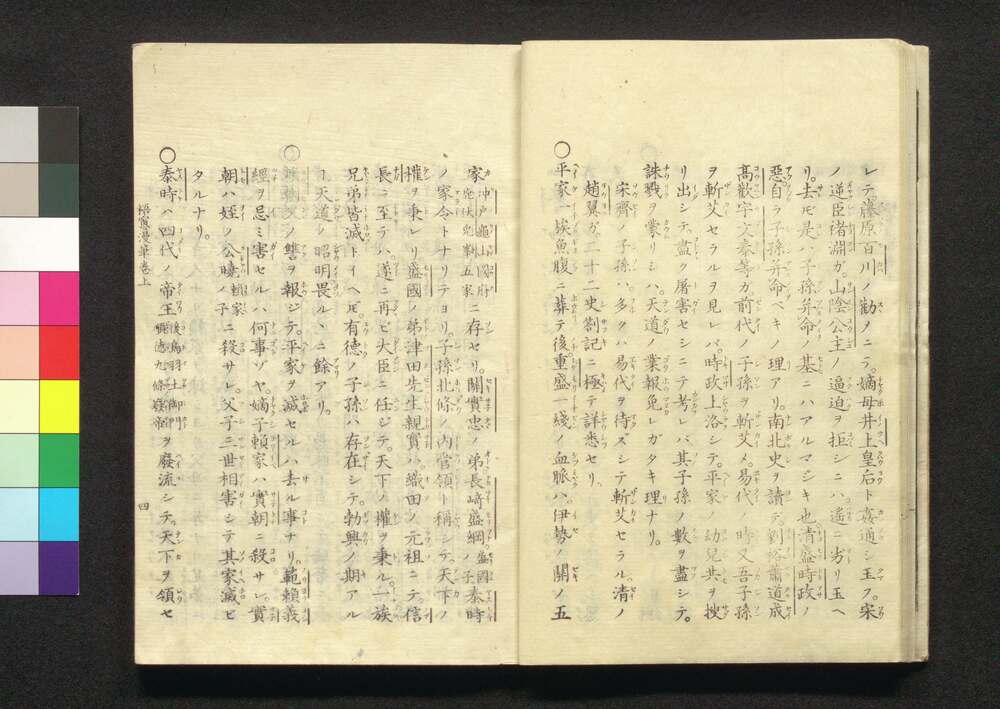 レテ藤原百川ノ勸ノニラ。嫡母井上皇后ト姦通シ玉フ。宋
ノ逆臣褚淵ガ。山陰公主ノ逼迫ヲ拒シニハ。遙ニ劣リ玉ヘ
リ。去𪜈是ハ子孫弁命ノ基ニハアルマシキ也。清盛時政ノ
惡自ラ子孫弁命ベキノ理アリ。南北史ヲ請テ。劉裕蕭道成
高歡宇文泰等ガ前代ノ子孫ヲ斬艾メ。易代ノ時又吾子孫
ヲ斬艾セラルヲ見レバ。時政上洛シテ。平家ノ幼兒共ヲ搜
リ出シテ。盡ク屠害セシニテ考レバ。其子孫ノ數ヲ盡シテ。
誅戮ヲ蒙リシハ。天道ノ業報免レガタキ理ナリ。
宋齊ノ子孫ハ。多クハ易代ヲ待ズシテ斬艾セラル。清ノ
趙翼ガ二十二史劄記ニ極テ詳悉セリ。
〇平家ノ一族魚腹ニ葬テ後。重盛一綫ノ血脈ハ。伊勢ノ關ノ五
家 沖戸龜山國府ニ存セリ。關實忠ノ弟長﨑盛綱 盛國ノ子 泰時
ノ家令トナリテヨリ。子孫北條ノ内管領ト稱シテ。天下ノ
權ヲ秉レリ盛國ノ弟津田先生親實ハ。織田ノ元祖ニテ。信
長ニ至テハ。遂ニ再ビ大臣ニ任ジテ。天下ノ權ヲ秉ル。一族
兄弟皆滅トイヘ𪜈。有徳ノ子孫ハ存在シテ。勃興ノ期アル
ヿ。天道ノ昭明畏ルヽニ餘アリ。
〇ノ讐ヲ報ジテ。平家ヲ滅セルハ去ル事ナリ。範頼義
經ヲ忌ミ害セルハ何事ゾヤ。嫡子頼家ハ實朝ニ殺サレ。實
朝ハ姪ノ公曉 頼家ノ子 ニ殺サレ。父子三世相害シテ其家滅ビ
タルナリ。
〇泰時ハ四代ノ帝王 後鳥羽土御門順德九條廢帝 ヲ廢流シテ。天下ヲ領セ
梧窻漫筆巻上
四